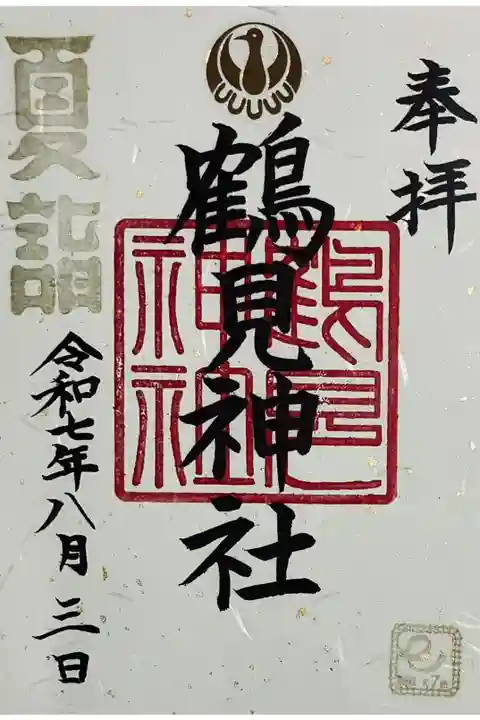 奉拝
鶴見神社
鶴見神社
夏詣
令和七年八月三日